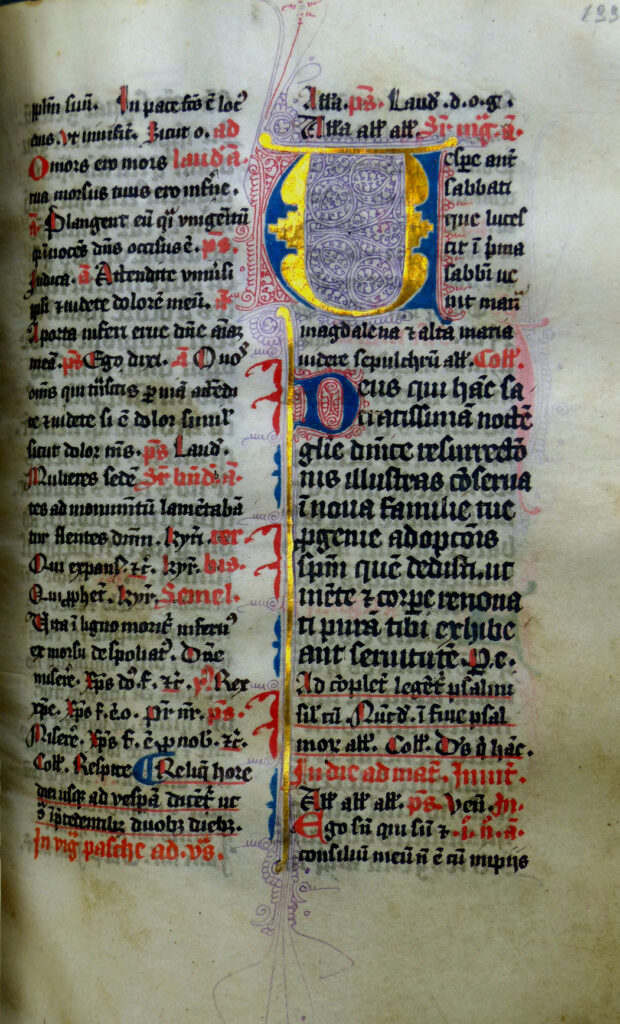 133
plm̄ suū. In pace fcūs ē loc⁹
eius. Vt inuisit. Sicut o. ad
O mors ero mors laud̄. ā.
tua morsus tuus ero inferne.
ā. Plangent eū qͥ vnigenitū
qr̄ innocēs dn̄s occisus ē. ps̄.
Iudica. ā. Attendite vniūsi
ppli ⁊ videte dolorē meū. ā.
A porta inferi erue dn̄e aīaz
meā. ps̄. Ego dixi. ā. O uos
om̄s qui trāsitis ꝑ uiā attēdi
te ⁊ videte si ē dolor simil'
sicut dolor me⁹. ps̄. Laud̄.
Mulieres sedē Sr̄ bn̄d̄. ā.
tes ad monumētū lamētabā
tur flentes dn̄m. Kyrī. ter.
Qui expans̄. ⁊c̄. Kyr̄. bis.
Qui ꝓphet̄. Kyr̄. Semel.
Vita ī ligno morit' infern⁹
ex morsu despoliat'. Dn̄e
misere'. Xp̄s do. f. ⁊c̄. V̄. Rex
xp̄e. Xp̄s f. e. o. Pr̄ nr̄. ps̄.
Misere'. Xp̄s f. ē ꝓ nob'. ⁊c̄.
Coll'. Respice Reliq̄ hore
diei usqꝫ ad vesꝑā dicēt' ut
ī p̄cedentibꝫ duobꝫ diebꝫ.
In vig' pasche ad. vs̄.
Alla. ps̄. Laud̄. d. o. g.
Alla all' all'. Sr̄ mḡ. ā.
Vespe aut̄
sabbati
que luces
cit ī pͥma
sabbi ue
nit mari
magdalena ⁊ alta maria
videre sepulchrū all'. Coll'.
Deus qui hāc sa
cratissimā noctē
glīe dn̄ice resurrectō
nis illustras cōserua
ī noua familie tue
ꝓgenie adoptōis
spm̄ quē dedisti. ut
mēte ⁊ corꝑe renoua
ti purā tibi exhibe
ant seruitutē. P. e.
Ad cōplet' leget' psalmi
sil' cū. Nuc̄ d. ī fine psal
mor̄. all'. Coll'. Ds̄ q̄ hāc.
In die ad mat̄. Inuit'.
All' all' all'. ps̄. Ven̄. In.
Ego sū qui sū ⁊. i. n̄. ā.
consiliū meū n̄ ē cū impijs